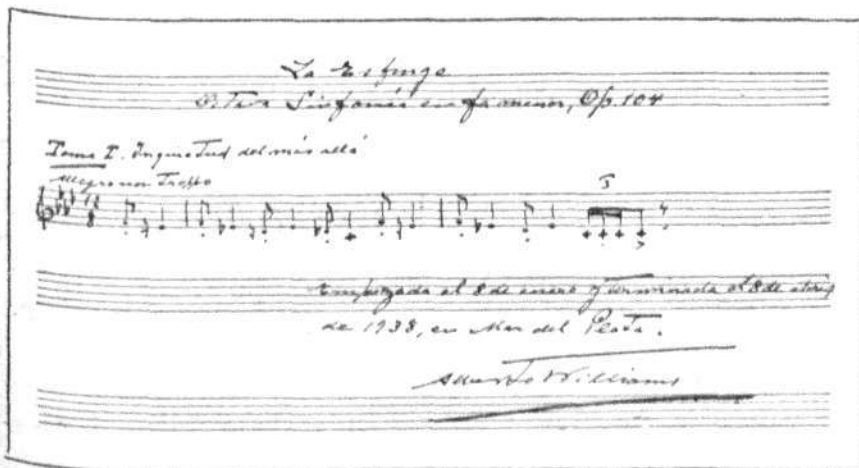 La Esfinge
Octava Sinfonía en fa menor, Op. 104
Tema I. Inquietud del más allá
Allegro non Troppo
12
8
5
Empezada el 8 de enero y terminada el 8 de
de 1938, en Mar del Plata.
Alberto Williams